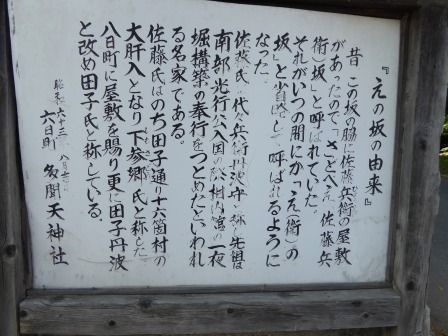 『えの坂の由来』
昔 この坂の脇に佐藤兵衛の屋敷
があったので「さとうべえ(佐藤兵
衛)坂」と呼ばれていた。
それがいつの間にか「え(衛)の
坂」と省略して呼ばれるように
なった。
佐藤氏は代々兵衛丹波守と称し先祖は
南部光行公入国の際 の一夜
堀構築の奉行をつとめたといわれ
る名家である。
佐藤氏はのち田子通り十六箇村の
大肝入となり下参郷氏と称した
八日町に屋敷を賜り更に田子丹波
と改め田子氏と称している。
昭和六十三年八月
六日町 多聞天神社